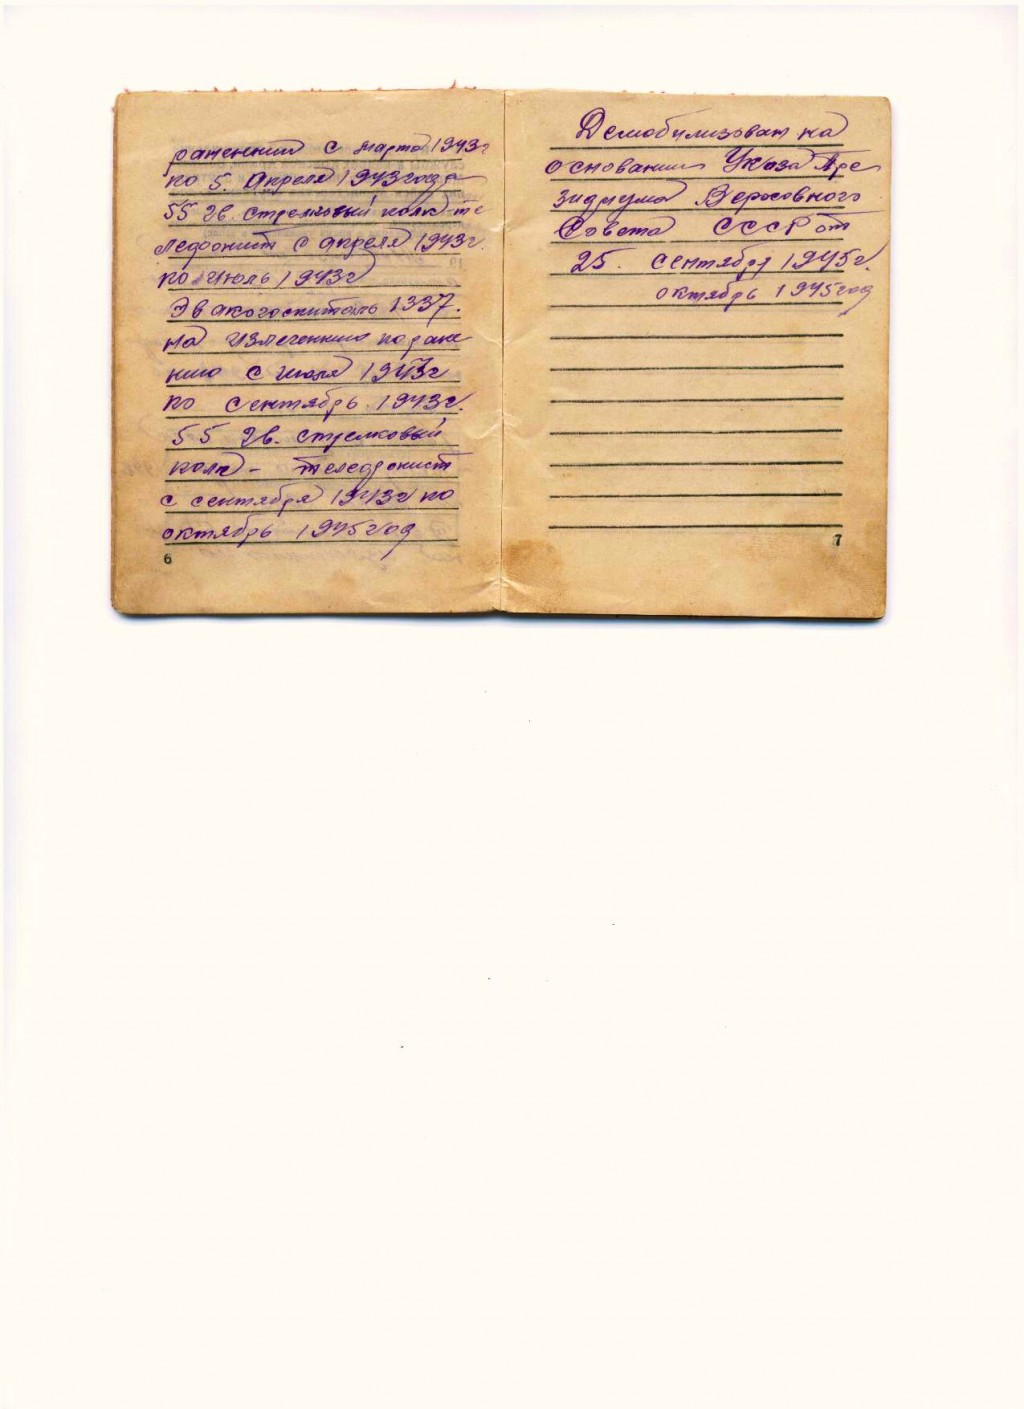 ранении с марта 1943г
по 5. Апреля 1943 года
55 гв. стрелковый полк те
лефонист с апреля 1943г.
по июль 1943г
Эвакогоспиталь 1337.
на излечении по ране
нию с июля 1943г
по сентябрь 1943г.
55 гв. стрелковый
полк - телефонист
с сентября 1943г по
октябрь 1945 год
6
Демобилизован на
основании Указа Пре
зидиума Верховного
Совета СССР от
25. сентября 1945г.
октябрь 1945 год
7